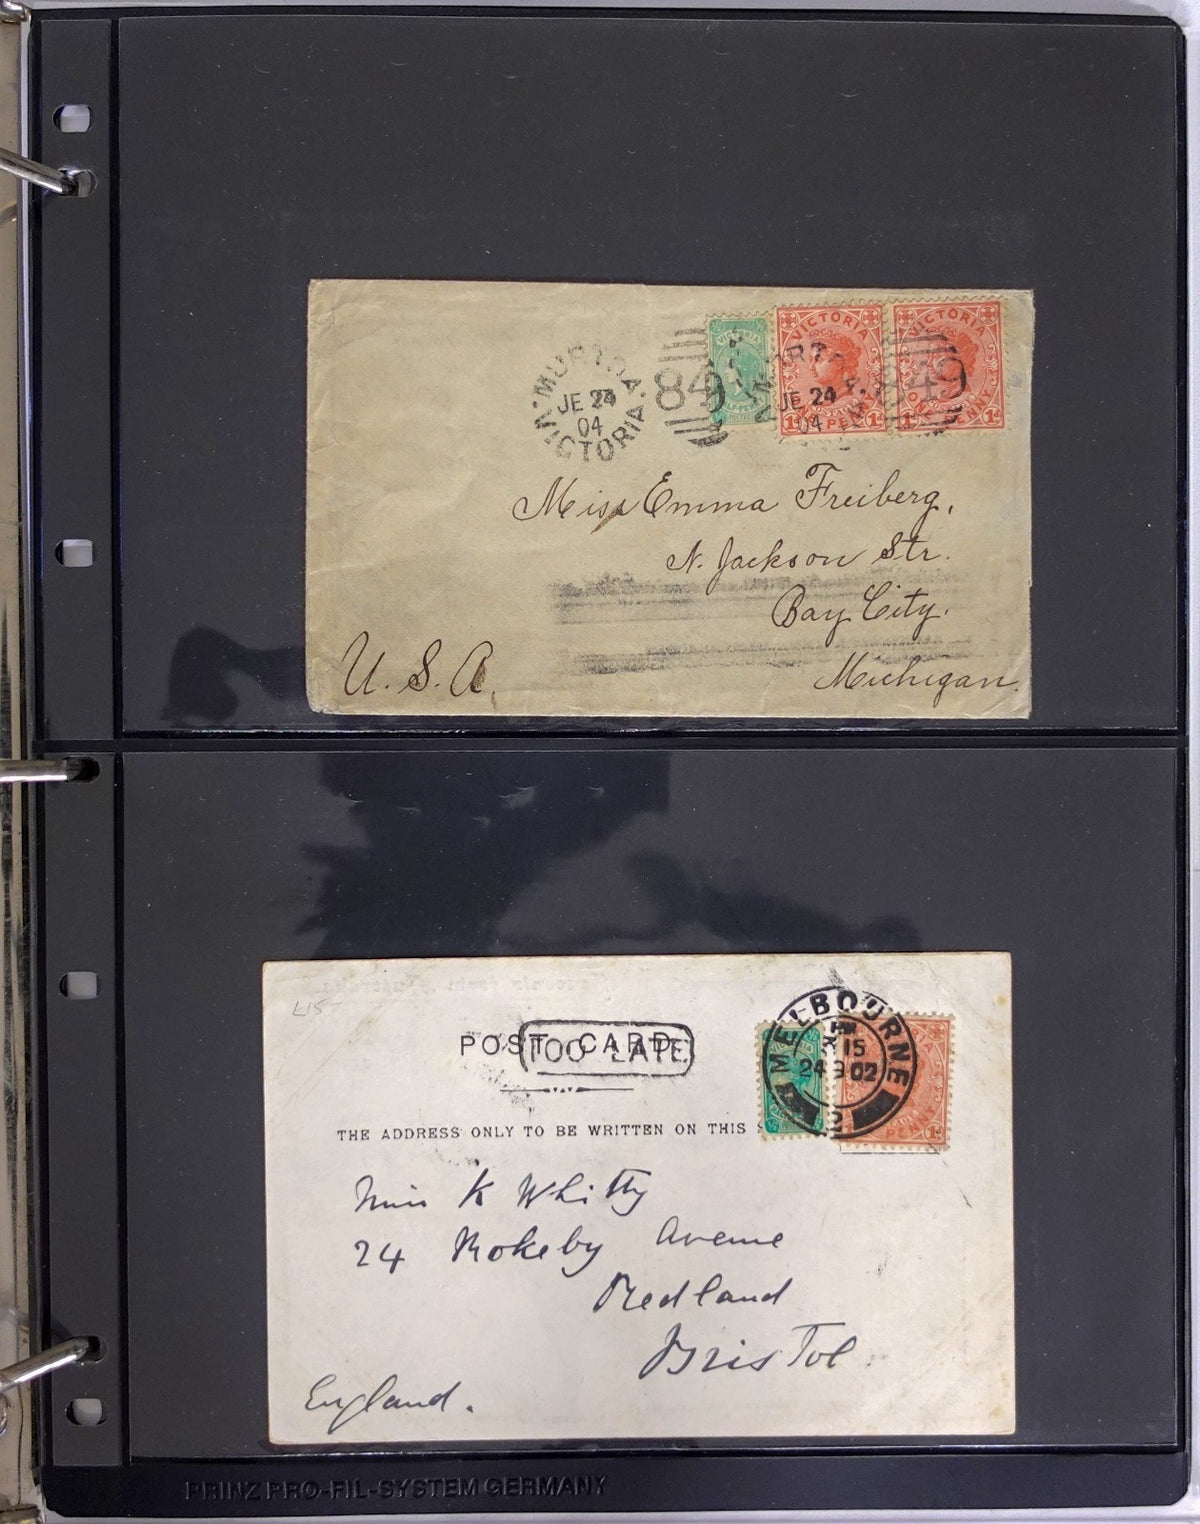 MURTOA.
JE 24
04
VICTORIA.
849
VICTORIA
HALF-PENNY
VICTORIA
ONE PENNY
1d
MURTOA.
JE 24
04
VICTORIA
849
1d
Miss Emma Freiberg,
N. Jackson Str.
Bay City.
U. S. A.
Michigan.
£15-
POST CARD.
TOO LATE
MELBOURNE
PM
15
24 9 02
PENNY
1d
THE ADDRESS ONLY TO BE WRITTEN ON THIS
Miss K Whitty
24 Rokeby Avenue
Redland
Bristol.
England.
PRINZ PRO-FIL-SYSTEM GERMANY